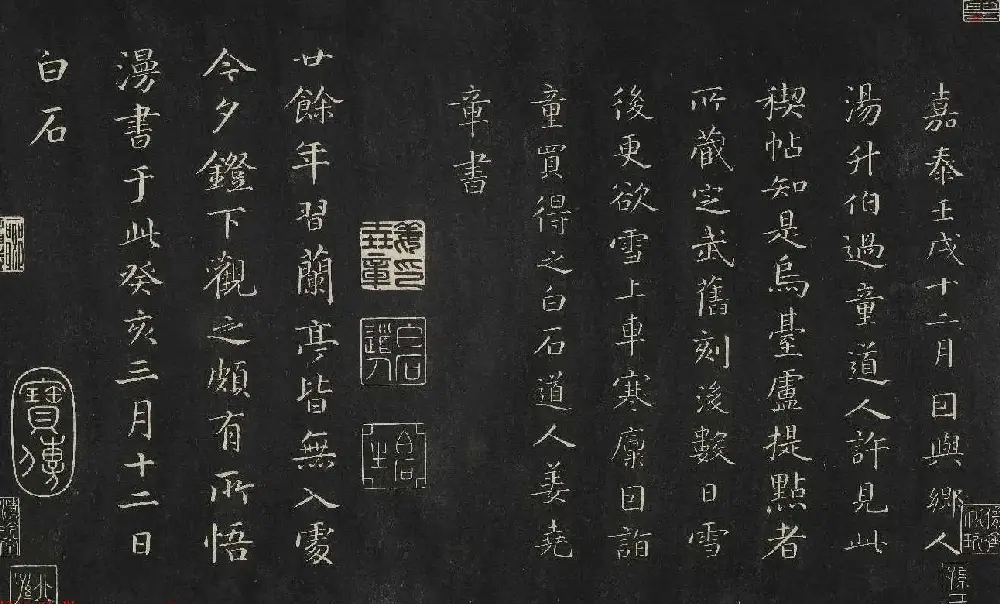 嘉泰壬戌十二月因與鄉人
湯升伯過童道人許見此
禊帖知是烏臺盧提點者
所藏定武舊刻後數日雪
後更欲雪上車寒凜因詣
童買得之白石道人姜堯
章書
廿餘年習蘭亭皆無入處
今夕鐙下觀之頗有所悟
漫書于此癸亥三月十二日
白石